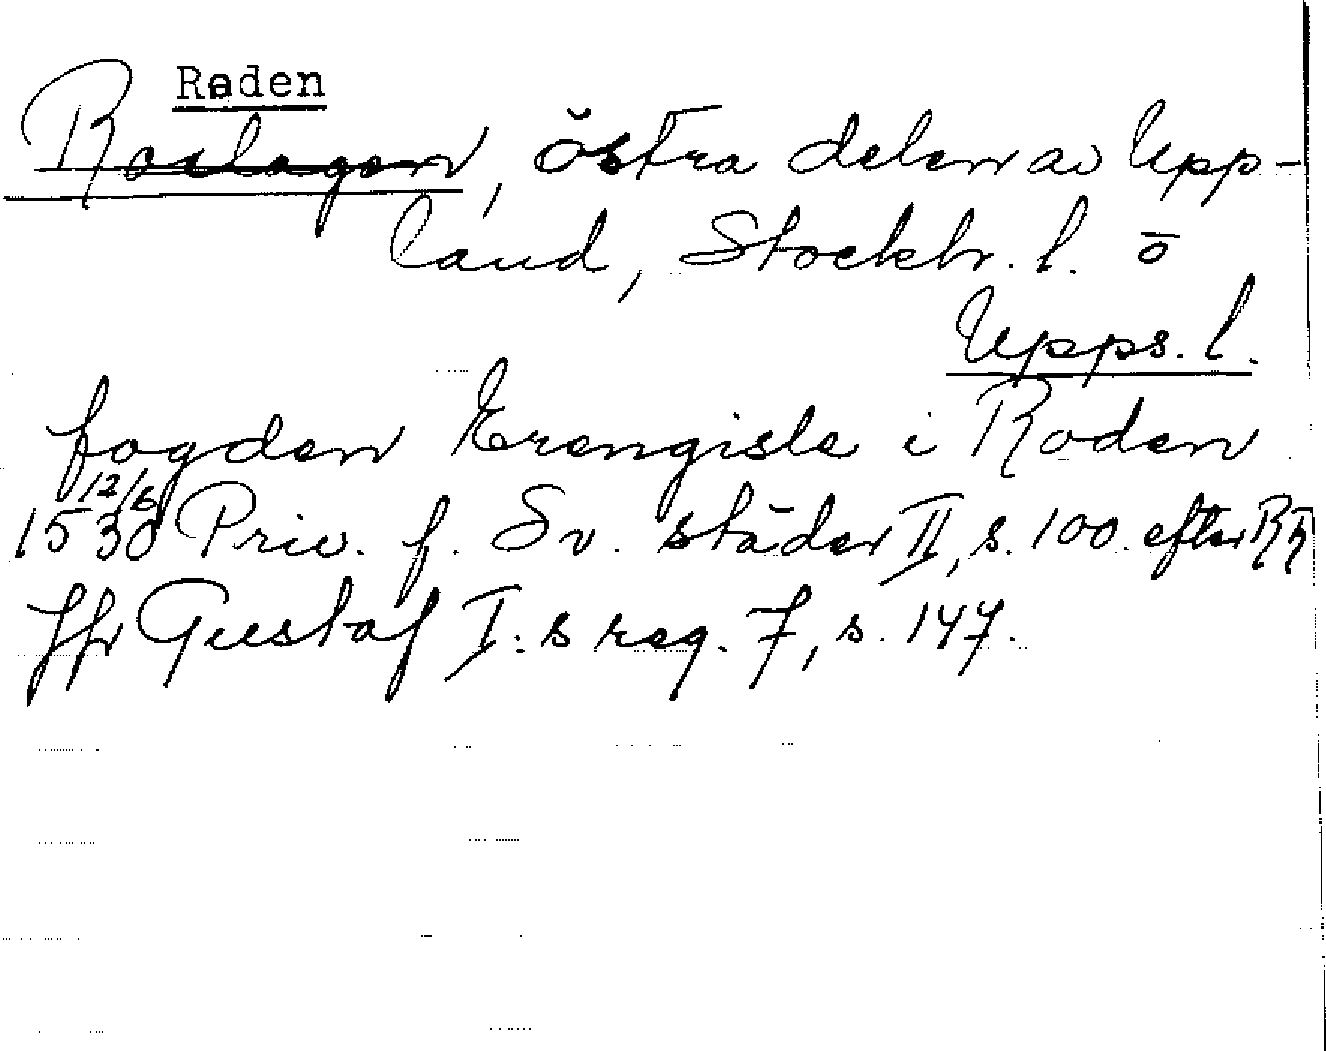 Roden
Roslagen, östra delen av Upp-
land, Stockh. l. o
Upps. l.
fogden Erengisle i Roden
12/6
1530 Priv. f. Sv. städer II, s. 100. efter RR
Jfr Gustaf I:s reg. 7, s. 147.